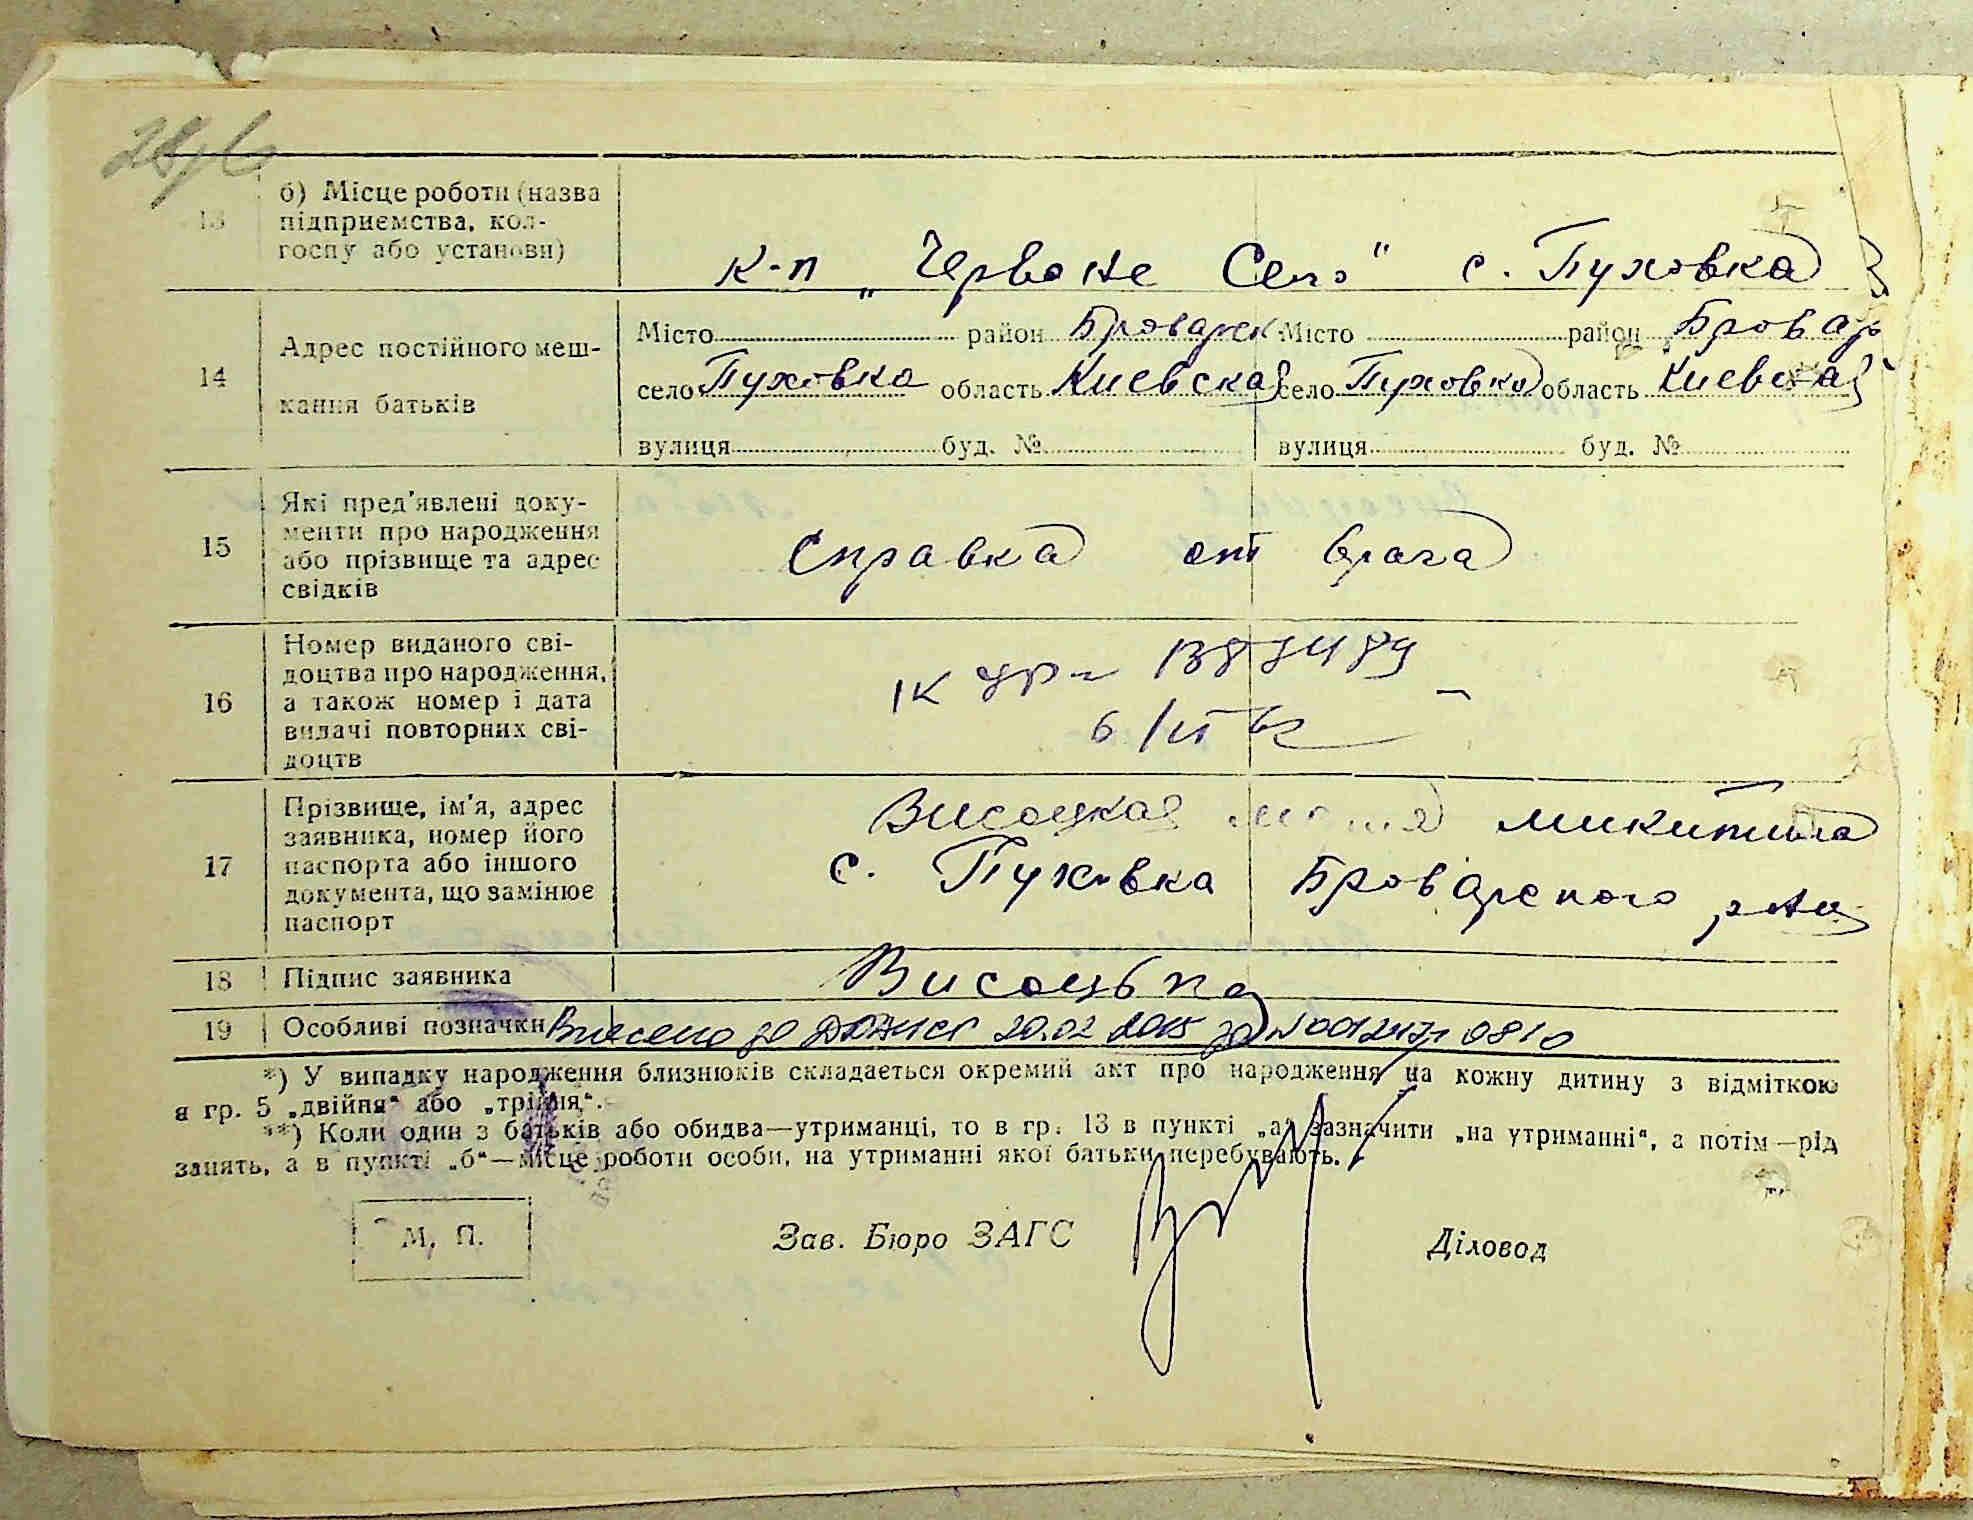 13
б) Місце роботи (назва
підприємства, кол-
госпу або установи)
к-п „Червоне Село" с. Пуховка
14
Адрес постійного меш-
кання батьків
Місто район Броварск Місто район Бровар
село Пуховка область Киевская село Пуховка область Киевская
вулиця буд. № вулиця буд. №
15
Які пред'явлені доку-
менти про народження
або прізвище та адрес
свідків
Справка от врача
16
Номер виданого сві-
доцтва про народження,
а також номер і дата
видачі повторних сві-
доцтв
17
Прізвище, ім'я, адрес
заявника, номер його
паспорта або іншого
документа, що замінює
паспорт
Висоцкая микитовна
с. Пуховка Броварского р-на
18 Підпис заявника Висоцька
19 Особливі позначки Внесено до ДРАЦС 20.02 2015 за №
*) У випадку народження близнюків складається окремий акт про народження на кожну дитину з відміткою
в гр. 5 „двійня" або „трійня".
**) Коли один з батьків або обидва—утриманці, то в гр. 13 в пункті „а" зазначити „на утриманні", а потім—рід
занять, а в пункті „б"—місце роботи особи, на утриманні якої батьки перебувають.
М. П. Зав. Бюро ЗАГС Діловод